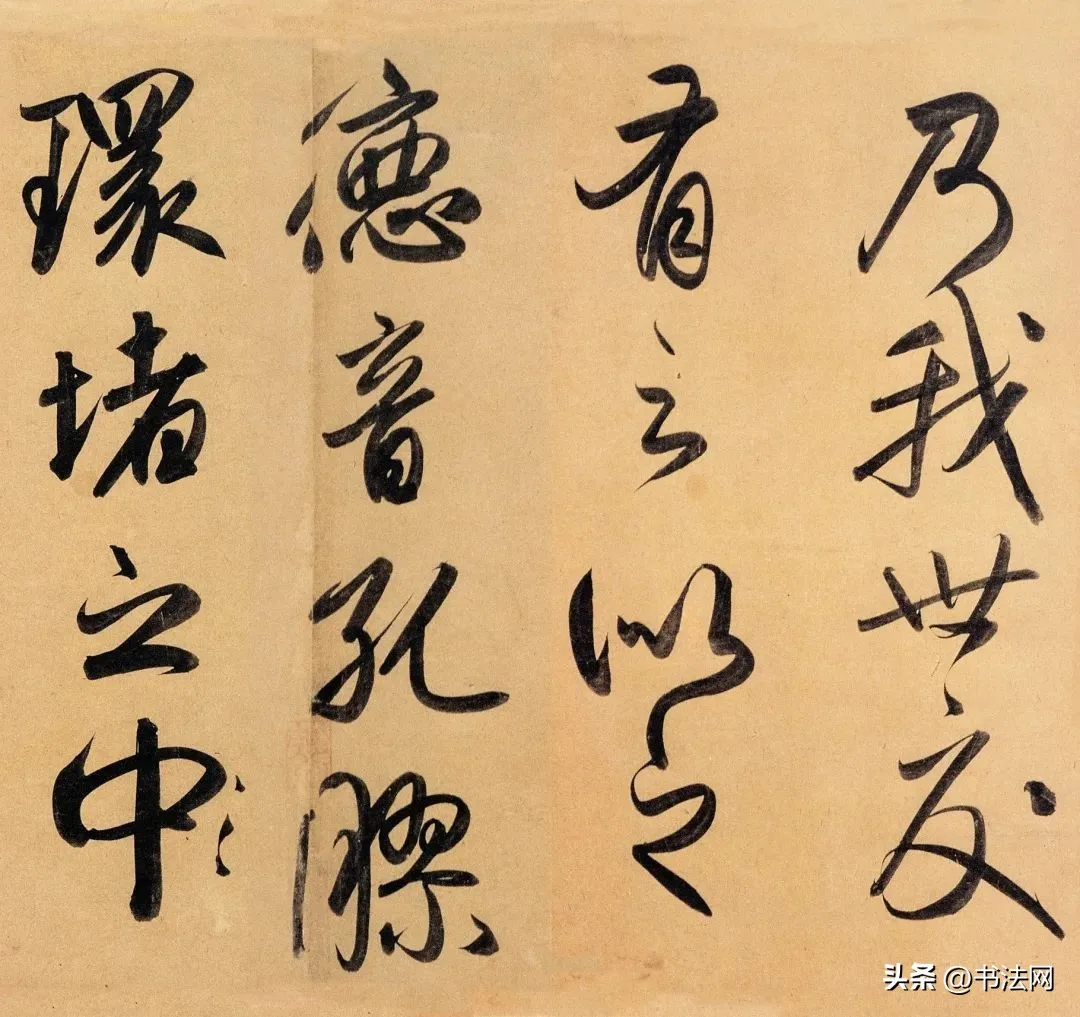 乃我世交
有之似之
德音孔膠
環堵之中
头条 @书法网